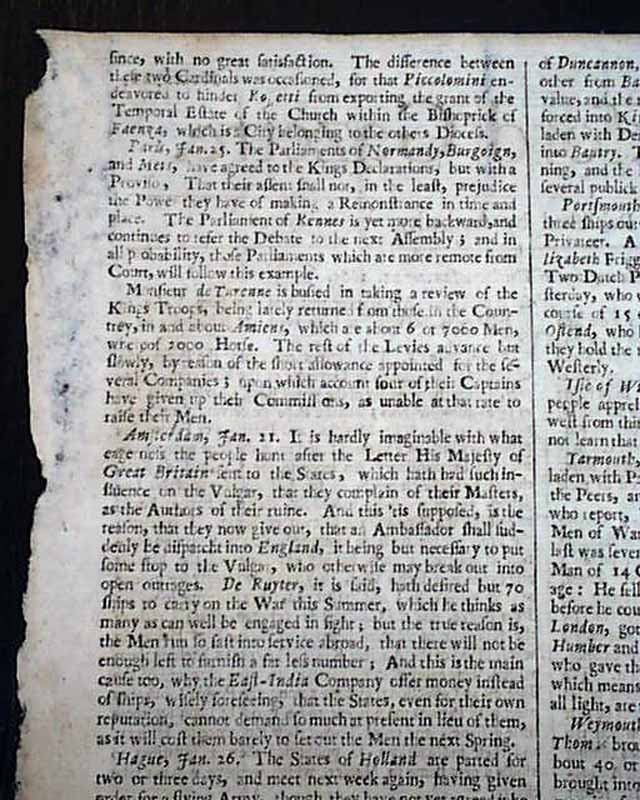 since, with no great satisfaction. The difference between
these two Cardinals was occasioned, for that Piccolomini en-
deavored to hinder from exporting the grant of the
Temporal Estate of the Church within the Bishoprick of
Faenza, which is a City belonging to the others Diocess.
Paris, Jan. 25. The Parliaments of Normandy, Burgoign,
and Mets, have agreed to the Kings Declarations, but with a
Proviso, That their assent shall not, in the least, prejudice
the Power they have of making a Remonstrance in time and
place. The Parliament of Rennes is yet more backward, and
continues to refer the Debate to the next Assembly; and in
all probability, those Parliaments which are more remote from
Court, will follow this example.
Monsieur de Turenne is busied in taking a review of the
Kings Troops, being lately returned from those in the Coun-
trey, in and about Amiens, which are about 6 or 7000 Men,
whereof 2000 Horse. The rest of the Levies advance but
slowly, by reason of the short allowance appointed for the se-
veral Companies; upon which account four of their Captains
have given up their Commissions, as unable at that rate to
raise their Men.
Amsterdam, Jan. 21. It is hardly imaginable with what
eagerness the people hunt after the Letter His Majesty of
Great Britain sent to the States, which hath had such in-
fluence on the Vulgar, that they complain of their Masters,
as the Authors of their ruine. And this 'tis supposed, is the
reason, that they now give out, that an Ambassador shall sud-
denly be dispatcht into England, it being but necessary to put
some stop to the Vulgar, who otherwise may break out into
open outrages. De Ruyter, it is said, hath desired but 70
ships to carry on the War this Summer, which he thinks as
many as can well be engaged in fight; but the true reason is,
the Men run so fast into service abroad, that there will not be
enough left to furnish a far less number; And this is the main
cause too, why the East-India Company offer money instead
of ships, wisely foreseeing, that the States, even for their own
reputation, cannot demand so much at present in lieu of them,
as it will cost them barely to set out the Men the next Spring.
Hague, Jan. 26. The States of Holland are parted for
two or three days, and meet next week again, having given
order for a flying Army, though they have not yet agreed
of Duncannon,
other from
value, and the
forced into
laden with
into Bantry.
ning, and the
several publick
Portsmouth
three ships
Privateer. A
lizabeth
Two Dutch
sterday, who
course of 15
Ostend, who
they hold the
Westerly.
Isle of
people
west from this
not learn that
Yarmouth,
laden with
the Peers,
who report,
Men of
last was
Man of 14
age: He
before he
London,
Humber and
who gave
which
all light, are
Weymouth
Thomas
bout 40
brought into